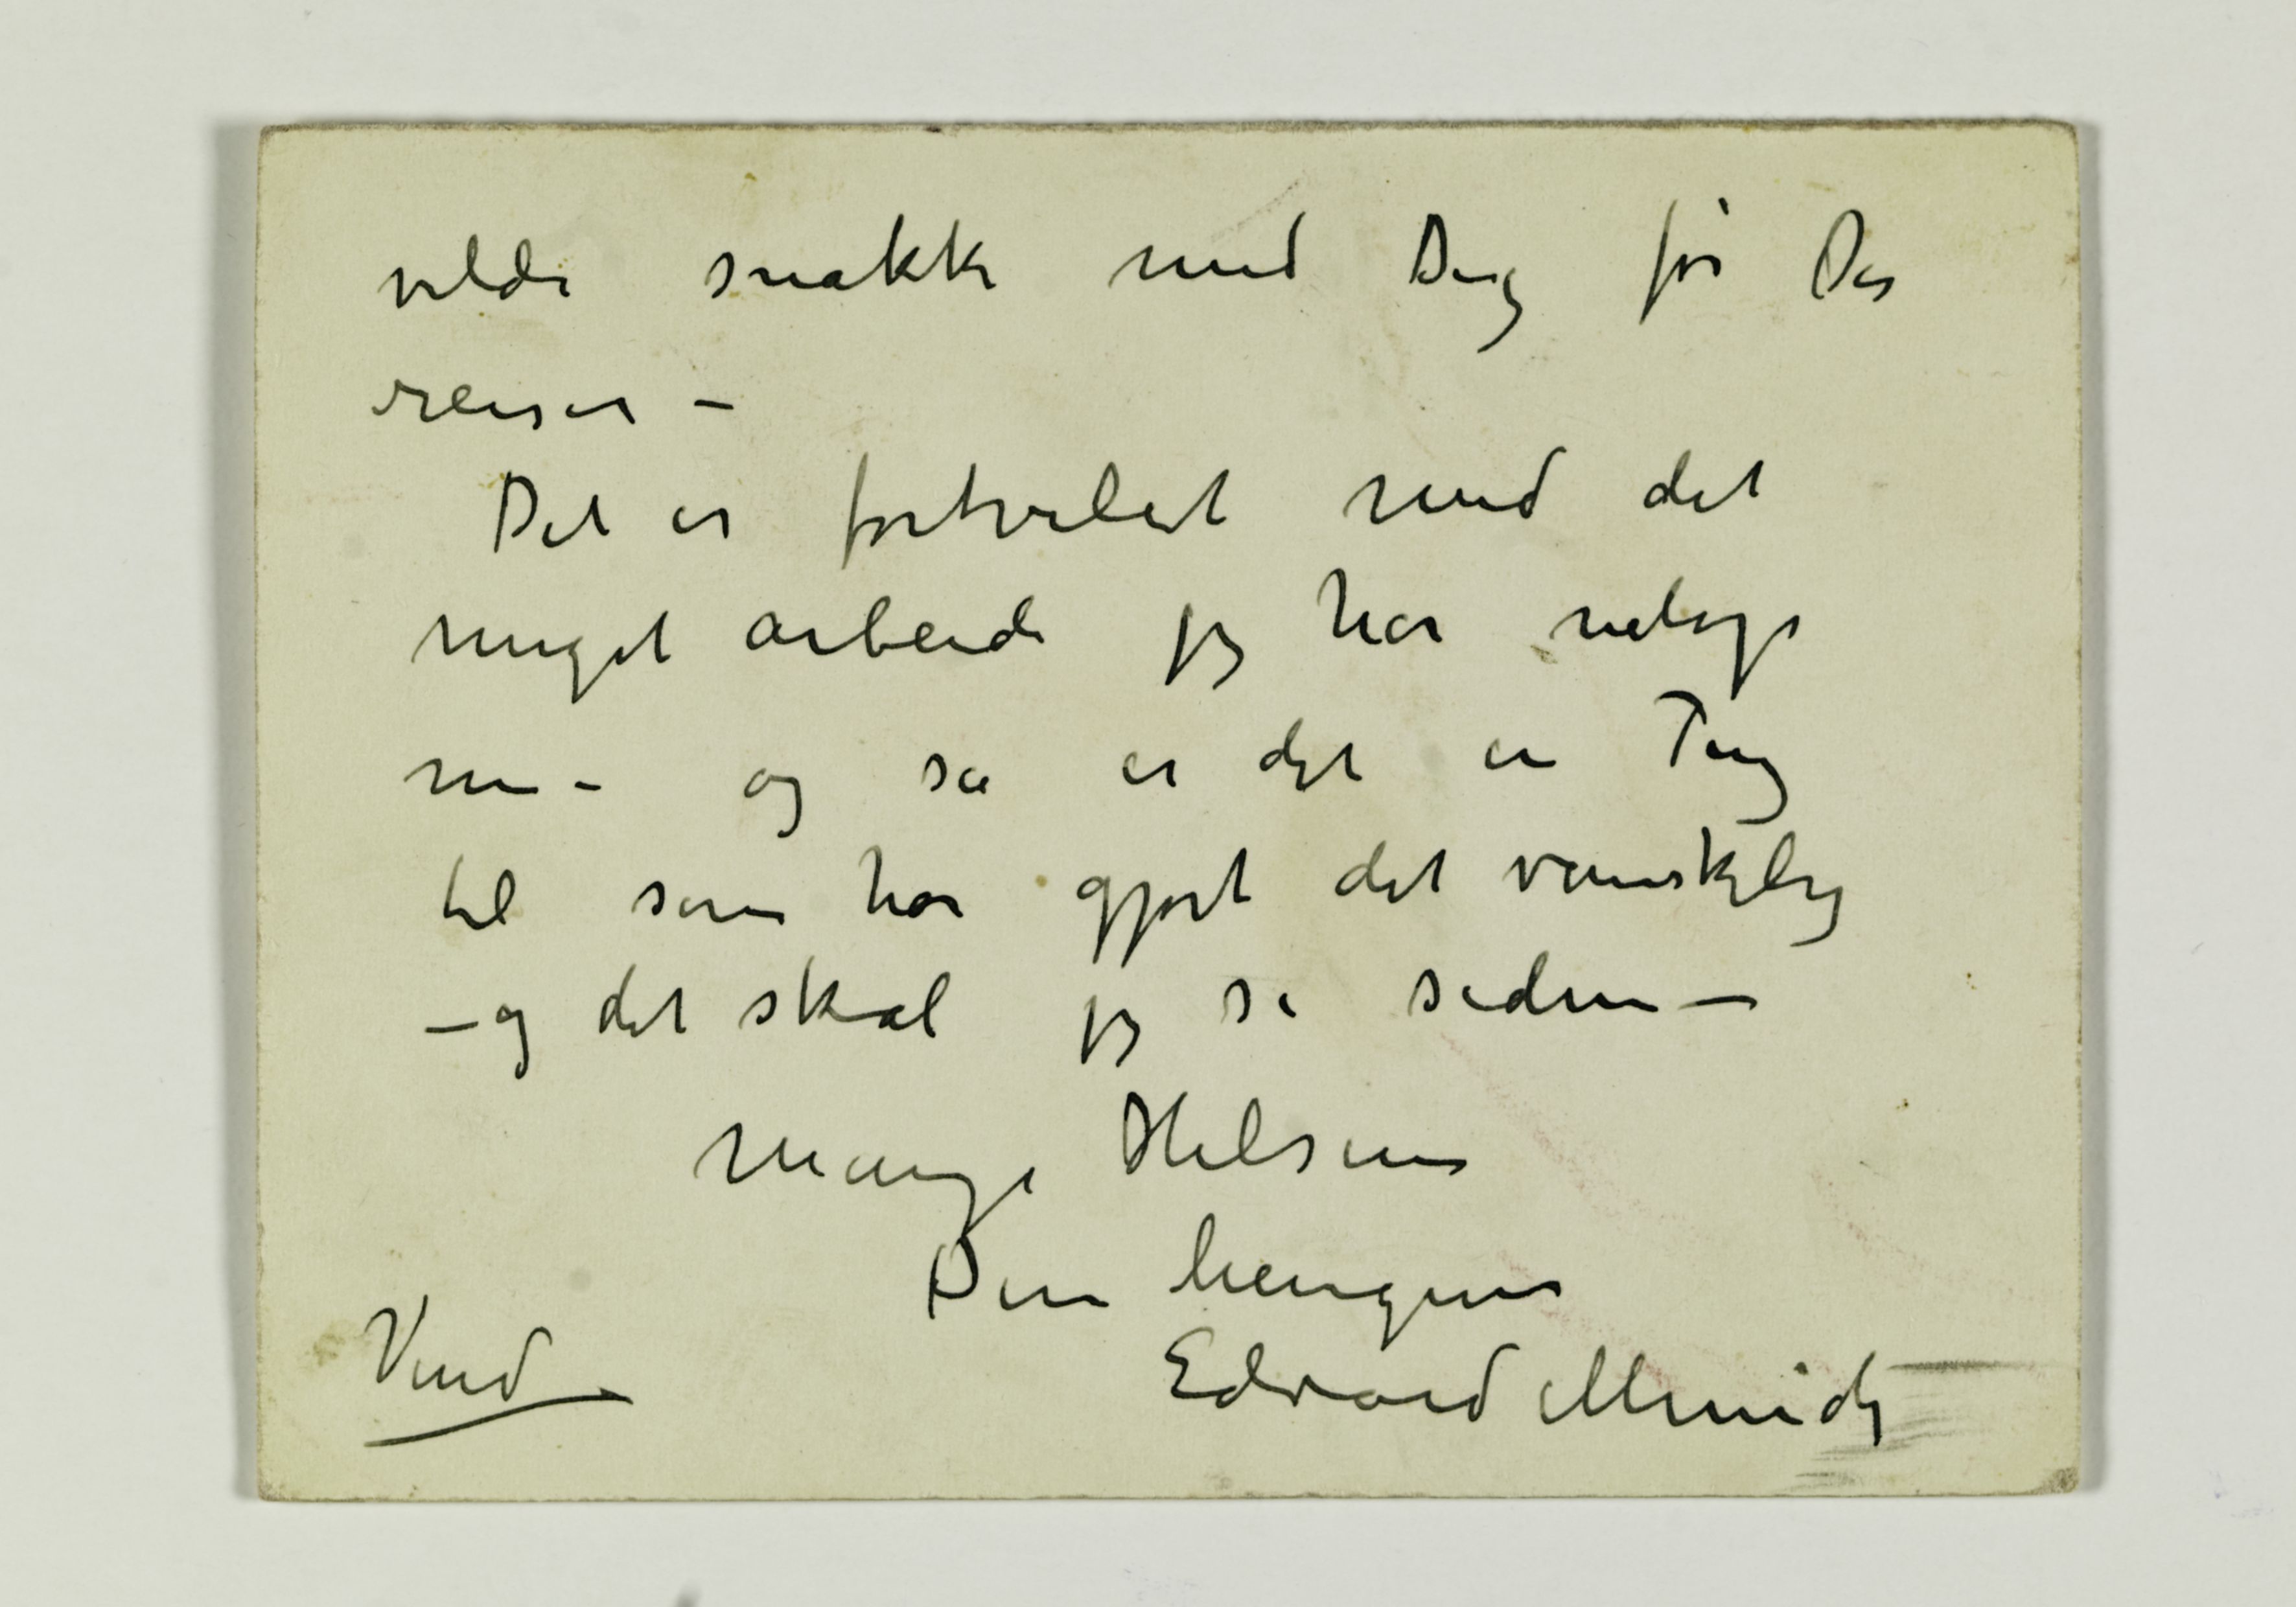 vilde snakke med Dig før Du
reiser –
Det er fortvilet med det
meget arbeide jeg har netop
nu – og så er det en Ting
til som har gjort det vanskelig
– og det skal jeg si siden –
Mange Hilsener
Din hengivne
Vend
Edvard Munch